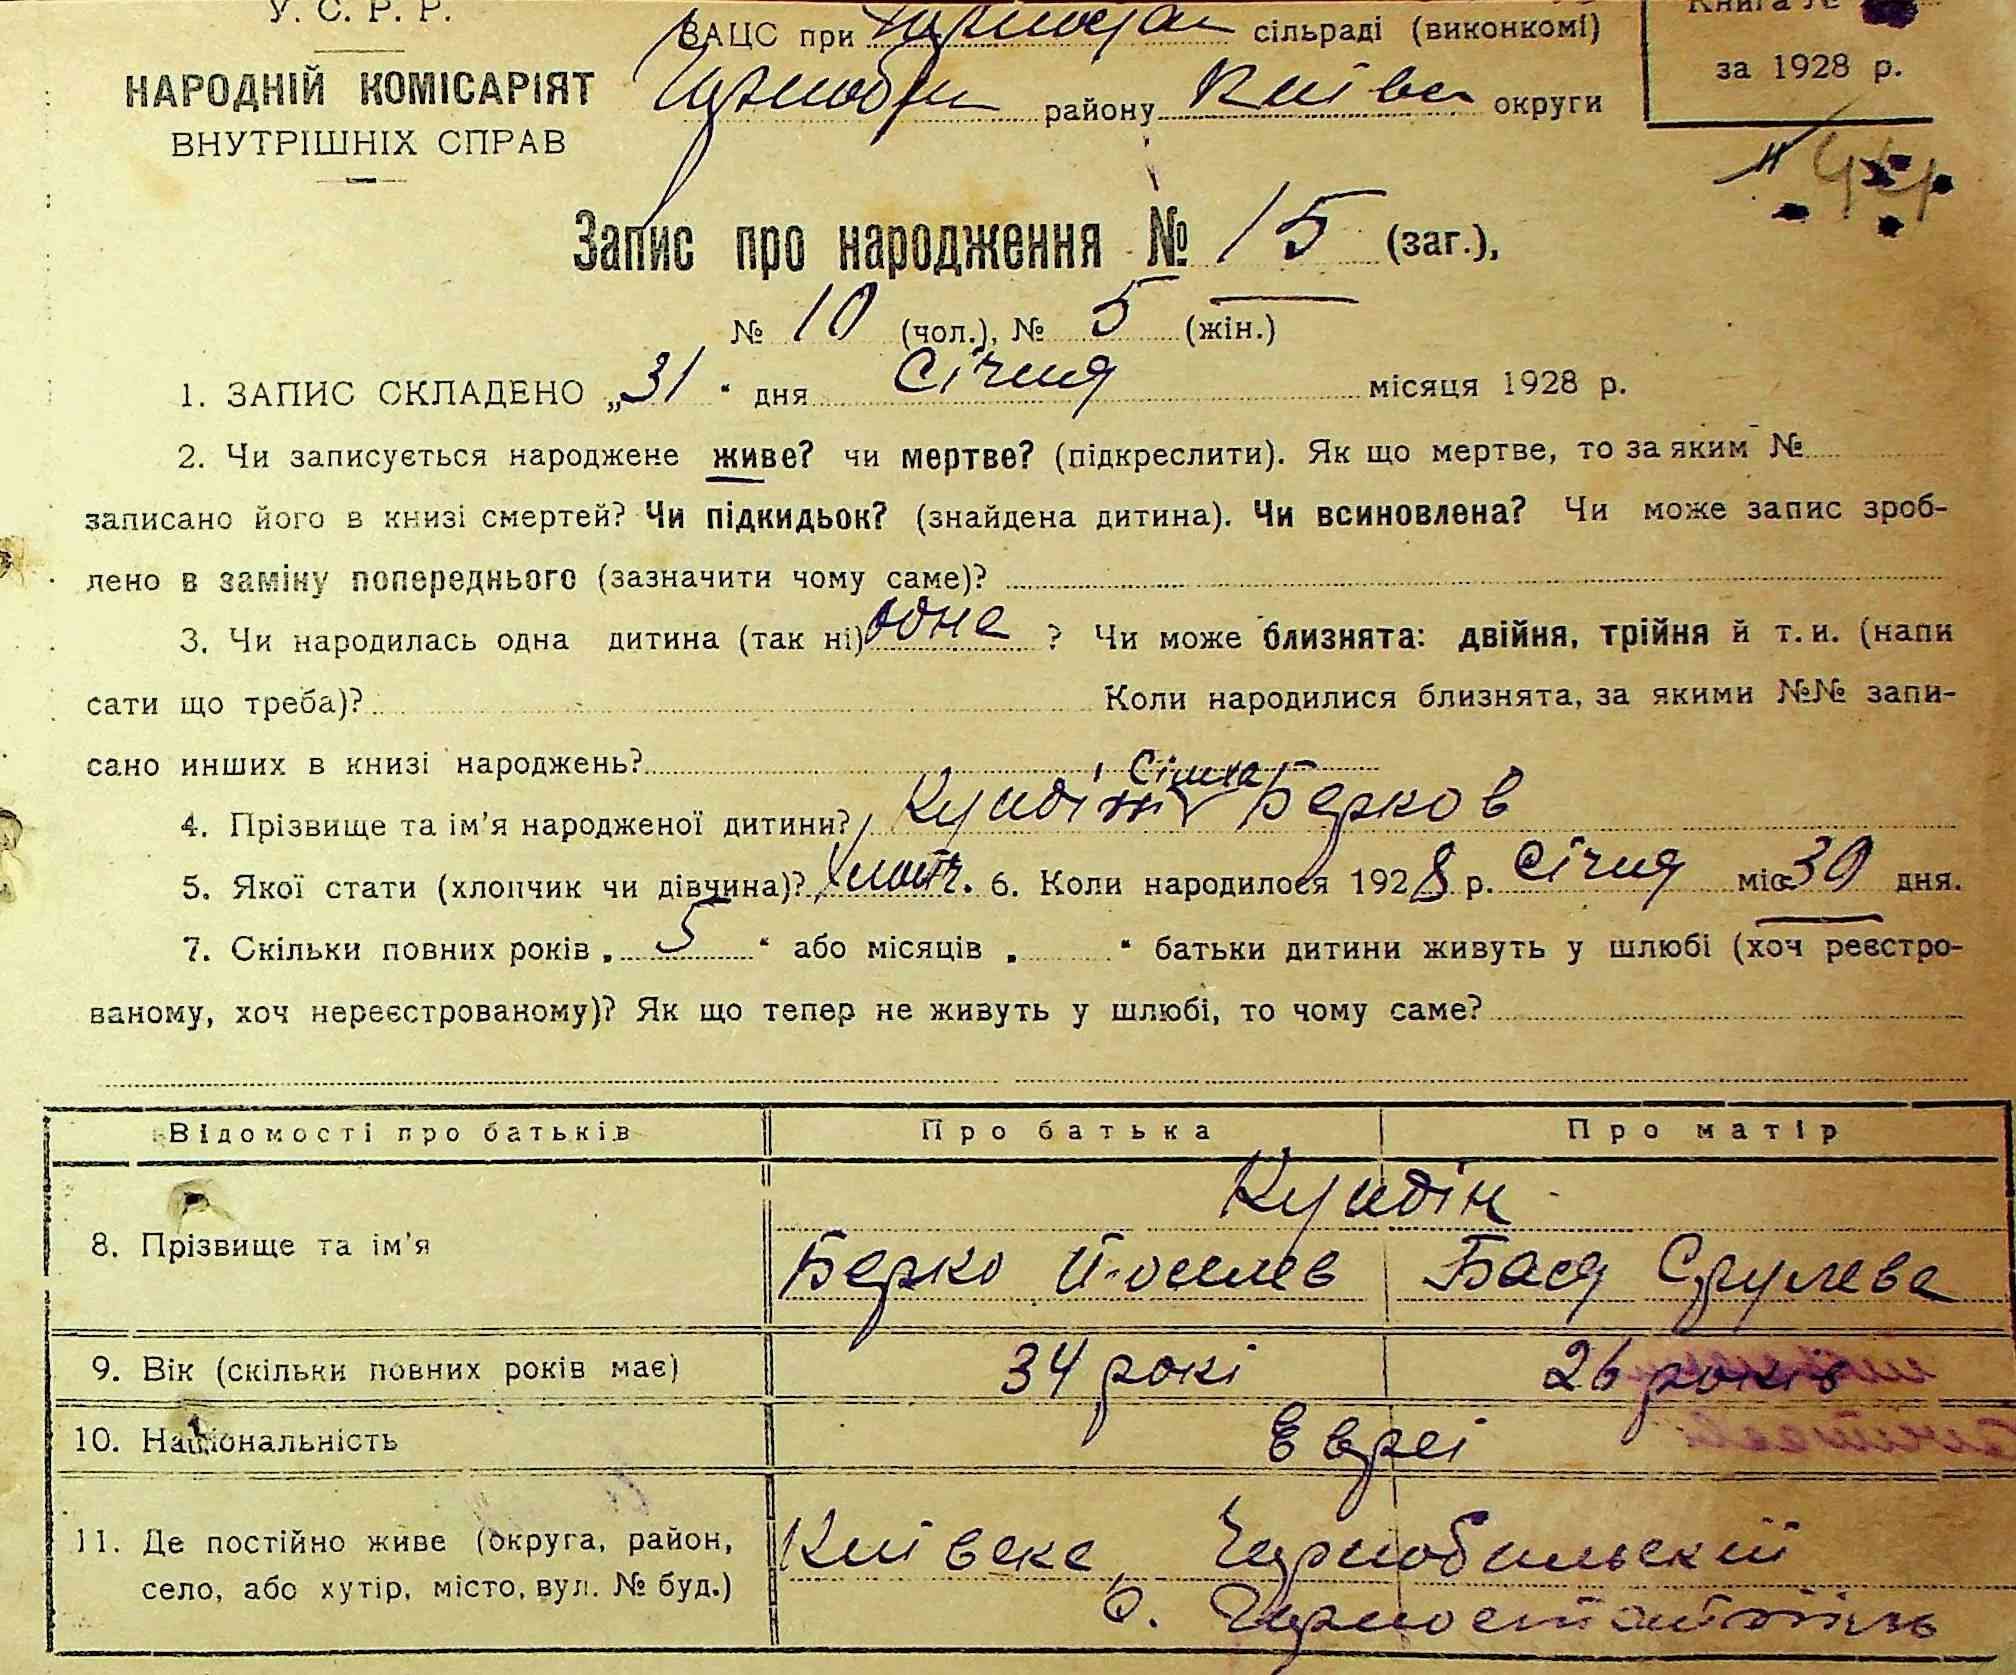 У. С. Р. Р.
НАРОДНІЙ КОМІСАРІЯТ
ВНУТРІШНІХ СПРАВ
ЗАЦС при сільраді (виконкомі)
Чорноб району Київс округи
Книга №
за 1928 р.
Запис про народження № 15 (заг.),
№ 10 (чол.), № 5 (жін.)
1. ЗАПИС СКЛАДЕНО „31“ дня Січня місяця 1928 р.
2. Чи записується народжене живе? чи мертве? (підкреслити). Як що мертве, то за яким №
записано його в книзі смертей? Чи підкидьок? (знайдена дитина). Чи всиновлена? Чи може запис зроб-
лено в заміну попереднього (зазначити чому саме)?
3. Чи народилась одна дитина (так ні) одне ? Чи може близнята: двійня, трійня й т. и. (напи
сати що треба)? Коли народилися близнята, за якими №№ запи-
сано инших в книзі народжень?
4. Прізвище та ім’я народженої дитини? Кундін Сімха Берков
5. Якої статі (хлопчик чи дівчина)? хлопч. 6. Коли народилося 1928 р. Січня міс 30 дня.
7. Скільки повних років „5“ або місяців „ “ батьки дитини живуть у шлюбі (хоч реєстро-
ваному, хоч нереєстрованому)? Як що тепер не живуть у шлюбі, то чому саме?
Відомості про батьків Про батька Про матір
Кундін
8. Прізвище та ім’я Берко Йоселев Бася Срулева
9. Вік (скільки повних років має) 34 рокі 26 років
10. Національність Євреі
11. Де постійно живе (округа, район, Київске, Чорнобильскій
село, або хутір, місто, вул. № буд.)